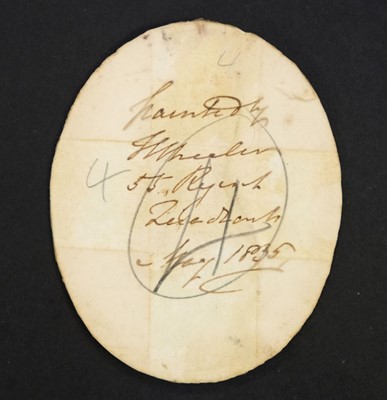 4
Painted by
T Wheeler
4
55 Regent
Quadrant
May 1835